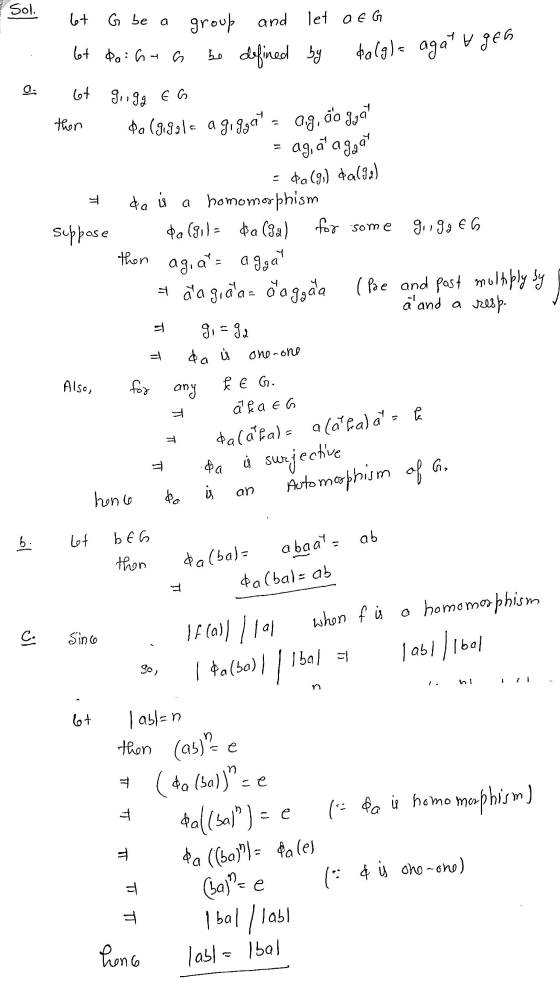 Sol. Let G be a group and let a ∈ G
Let ϕa : G → G be defined by ϕa(g) = aga⁻¹ ∀ g ∈ G
a. Let g₁, g₂ ∈ G
then ϕa(g₁g₂) = ag₁g₂a⁻¹ = ag₁a⁻¹ag₂a⁻¹
= ag₁a⁻¹ag₂a⁻¹
= ϕa(g₁) ϕa(g₂)
⇒ ϕa is a homomorphism
Suppose ϕa(g₁) = ϕa(g₂) for some g₁, g₂ ∈ G
then ag₁a⁻¹ = ag₂a⁻¹
⇒ a⁻¹ag₁a⁻¹a = a⁻¹ag₂a⁻¹a (Pre and post multiply by a⁻¹ and a resp.)
⇒ g₁ = g₂
⇒ ϕa is one-one
Also, for any k ∈ G.
⇒ a⁻¹ka ∈ G
⇒ ϕa(a⁻¹ka) = a(a⁻¹ka)a⁻¹ = k
⇒ ϕa is surjective
hence ϕa is an Automorphism of G.
b. Let b ∈ G
then ϕa(ba) = abaa⁻¹ = ab
⇒ ϕa(ba) = ab
c. Since |f(a)| / |a| when f is a homomorphism
so, |ϕa(ba)| / |ba| ⇒ |ab| / |ba|
Let |ab| = n
then (ab)ⁿ = e
⇒ (ϕa(ba))ⁿ = e
⇒ ϕa((ba)ⁿ) = e (∵ ϕa is homomorphism)
⇒ ϕa((ba)ⁿ) = ϕa(e)
⇒ (ba)ⁿ = e (∵ ϕ is one-one)
⇒ |ba| / |ab|
hence |ab| = |ba|